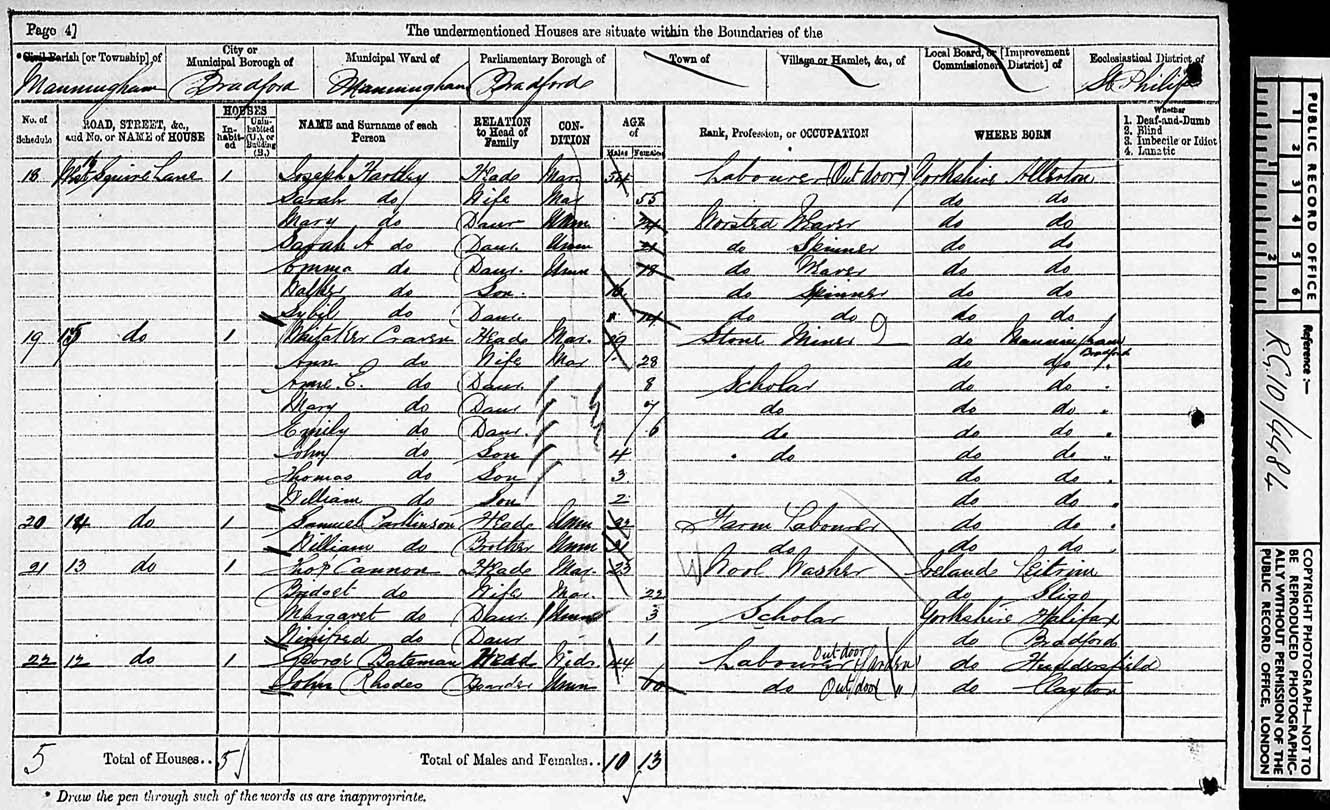 Page 4] The undermentioned Houses are situate within the Boundaries of the
*Civil Parish [or Township] of City or Municipal Borough of Municipal Ward of Parliamentary Borough of Town of Village or Hamlet, &c., of Local Board, or [Improvement Commissioners District] of Ecclesiastical District of
Manningham Bradford Manningham Bradford St Philip
No. of Schedule ROAD, STREET, &c., and No. or NAME of HOUSE HOUSES Inhabited Uninhabited (U.), or Building (B.) NAME and Surname of each Person RELATION to Head of Family CONDITION AGE of Males Females Rank, Profession, or OCCUPATION WHERE BORN Whether 1. Deaf-and-Dumb 2. Blind 3. Imbecile or Idiot 4. Lunatic
18 16 Squire Lane 1 Joseph Hartley Head Mar. 54 Labourer (Out door) Yorkshire Allerton
Sarah do Wife Mar 55 do do
Mary do Daur Unm 24 Worsted Weaver do do
Sarah A do Daur. Unm 21 do Spinner do do
Emma do Daur. Unm 18 do Weaver do do
Walker do Son. 16 do Spinner do do
Sybil do Daur. 14 do do do do
19 15 do 1 Whitaker Craven Head Mar. 29 Stone Miner do Manningham Bradford
Ann do Wife Mar 28 do do "
Ame C. do Daur. 8 Scholar do do "
Mary do Daur 7 do do do "
Emily do Daur. 6 do do do "
John do Son 4 do do do "
Thomas do Son 3 do do "
William do Son 2 do do "
20 14 do 1 Samuel Parkinson Head Unm 22 Farm Labourer do do "
William do Brother Unm 21 do do do "
21 13 do 1 Thos Cannon Head Mar. 23 Wool Washer Ireland Leitrim
Bridget do Wife Mar. 22 do Sligo
Margaret do Daur. Unm 3 Scholar Yorkshire Halifax
Winifred do Daur 1 do Bradford
22 12 do 1 George Bateman Head Widr. 44 Labourer Out door (Garden) do Huddersfield
John Rhodes Boarder Unm 60 do Out door " do Clayton
5 Total of Houses.. 5 Total of Males and Females.. 10 13
* Draw the pen through such of the words as are inappropriate.
PUBLIC RECORD OFFICE
1 2 3 4 5 6
1 2
Reference :—
RG 10/4484
COPYRIGHT PHOTOGRAPH—NOT TO
BE REPRODUCED PHOTOGRAPHIC-
ALLY WITHOUT PERMISSION OF THE
PUBLIC RECORD OFFICE, LONDON